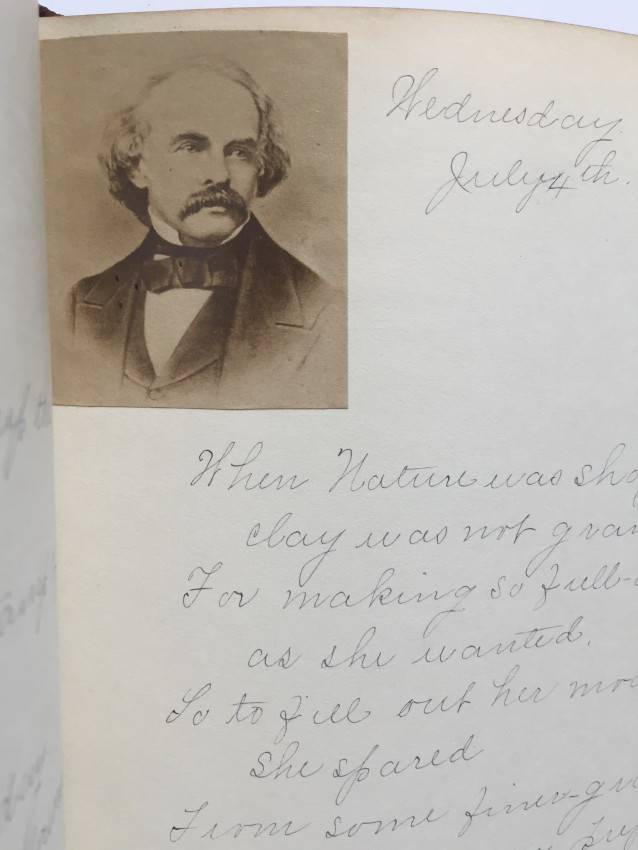 Wednesday
July 4th.
When Nature was sha
clay was not gran
For making so full-
as she wanted,
So to fill out her mod
she spared
From some finer-gr